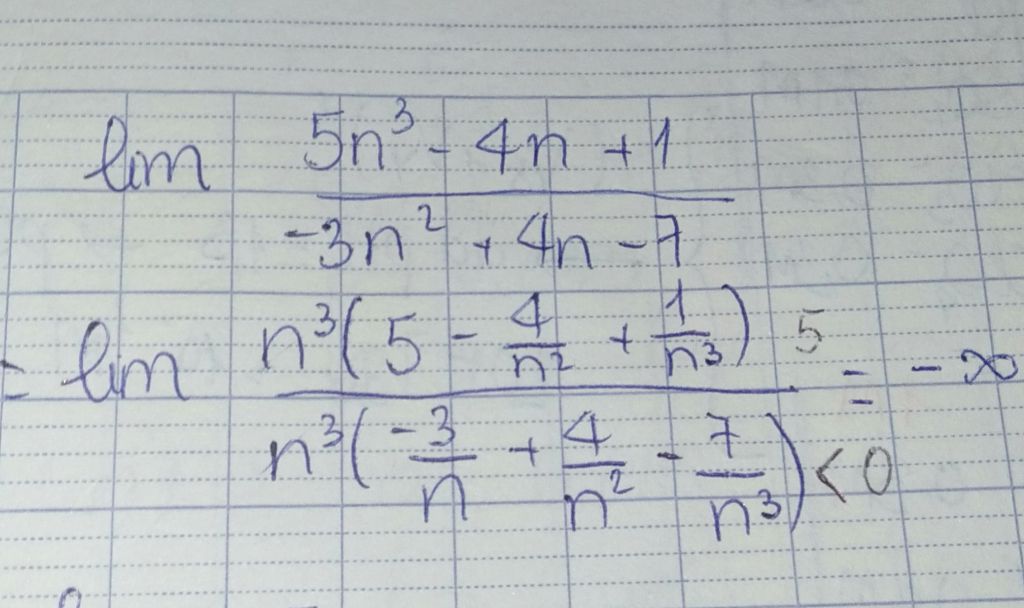 lim (5n³ - 4n + 1) / (-3n² + 4n - 7)
= lim n³(5 - 4/n² + 1/n³) / n³(-3/n + 4/n² - 7/n³) 5 <0 = -∞